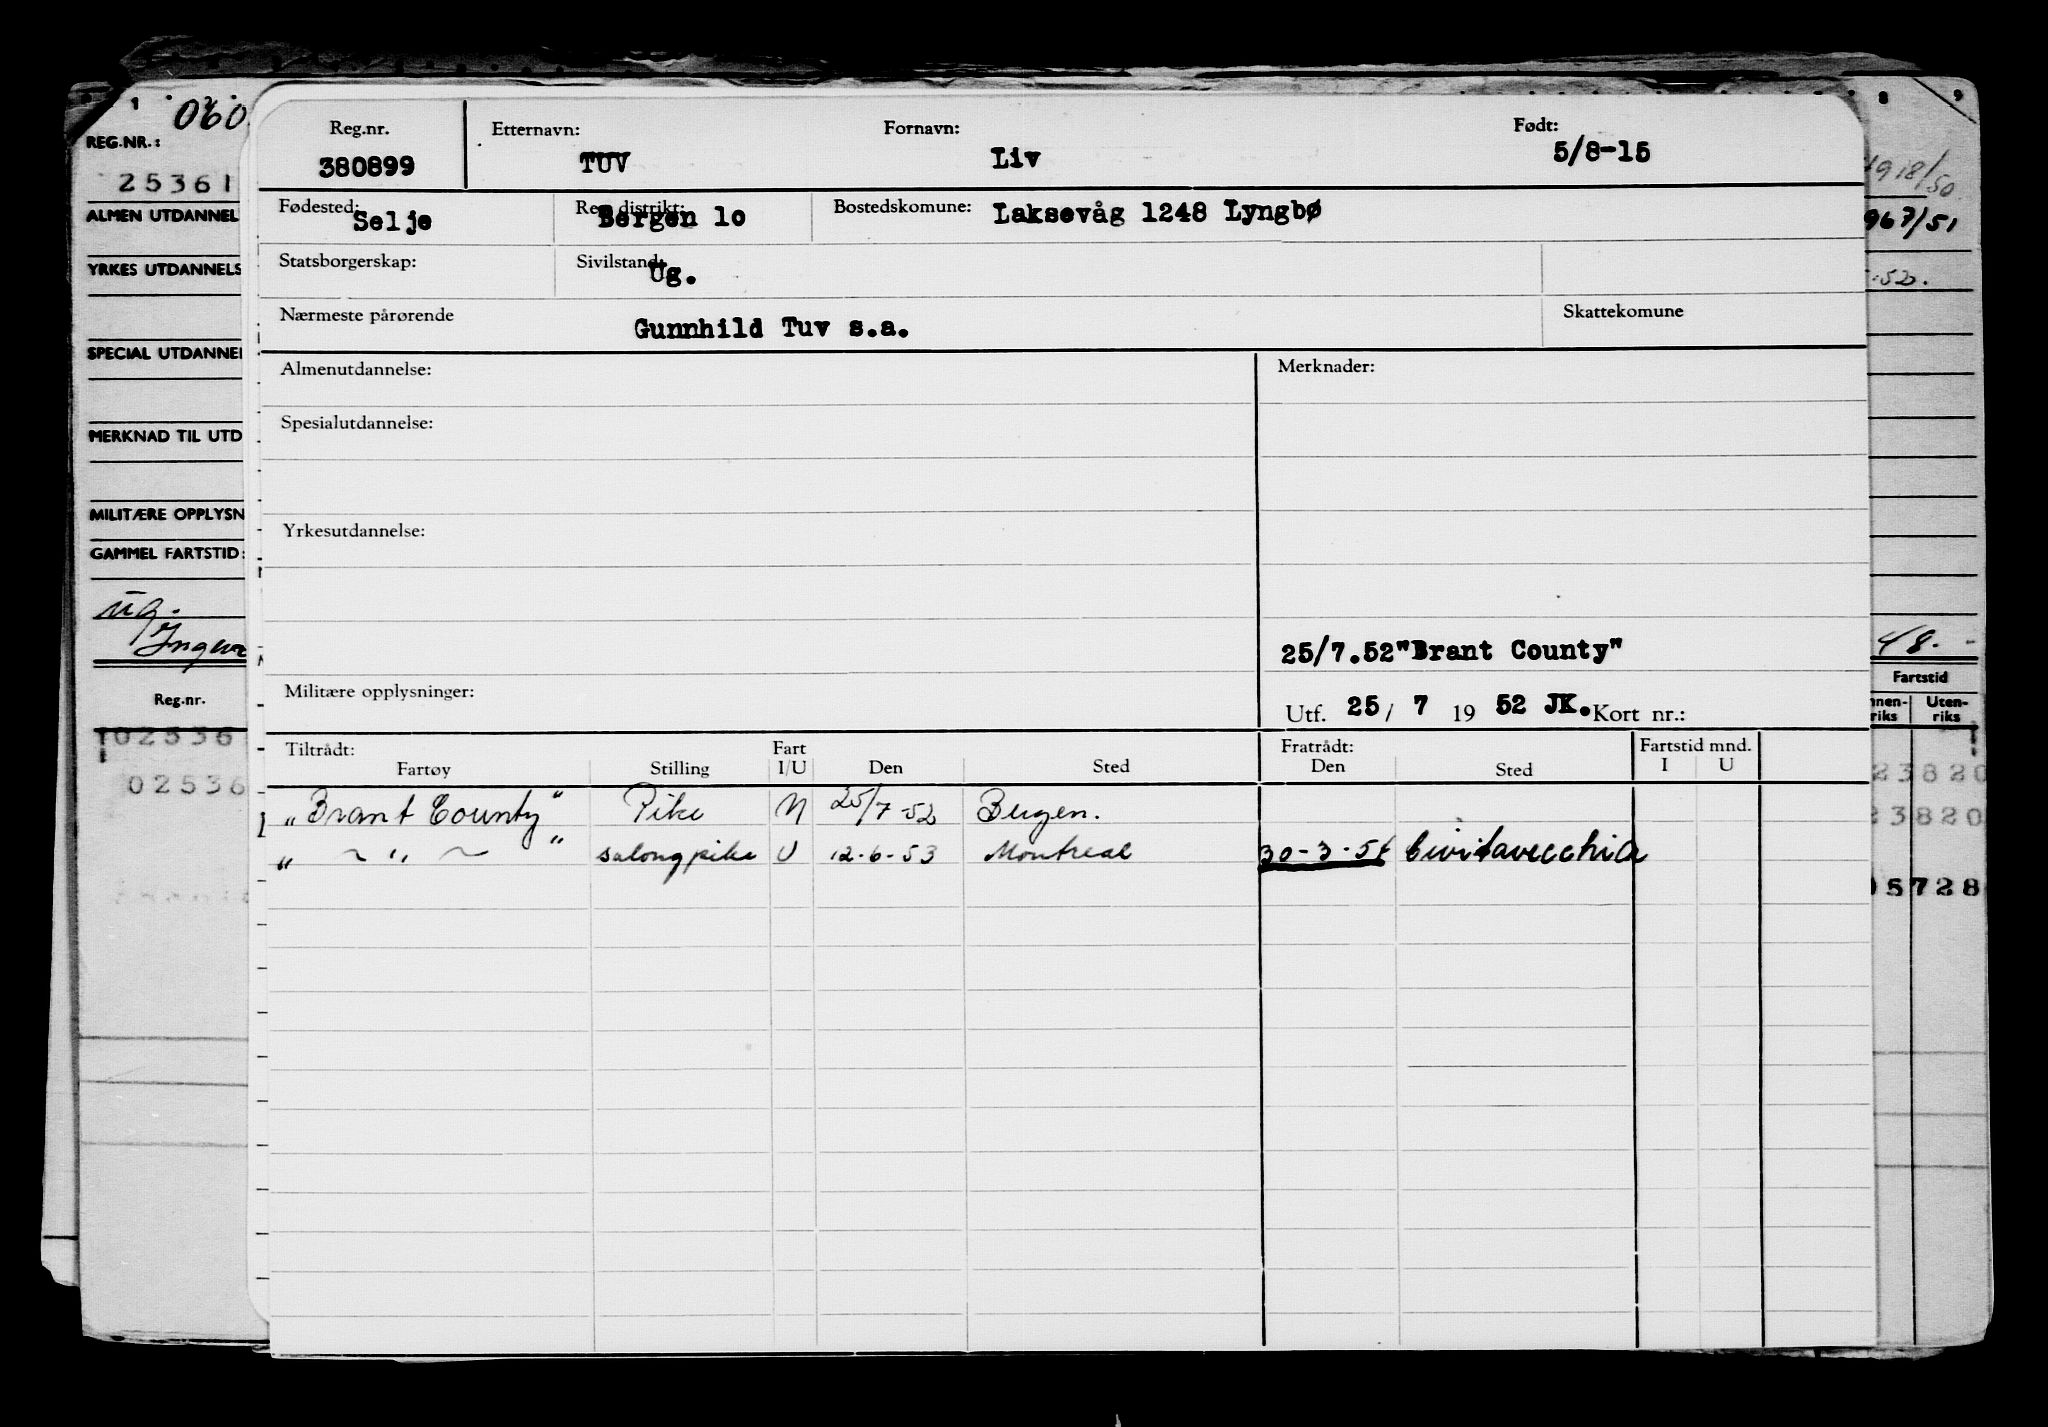 1 2 8 9
060
REG.NR.:
25361
ALMEN UTDANNEL
YRKES UTDANNELS
SPECIAL UTDANNEL
MERKNAD TIL UTD
MILITÆRE OPPLYSN
GAMMEL FARTSTID:
ug.
Reg.nr.
02536
02536
Reg.nr. Etternavn: Fornavn: Født:
380899 TUV Liv 5/8-15
Fødested: Selje Reg.distrikt: Bergen 10 Bostedskomune: Laksevåg 1248 Lyngbø
Statsborgerskap: Sivilstand: Ug.
Nærmeste pårørende Gunnhild Tuv s.a. Skattekomune
Almenutdannelse: Merknader:
Spesialutdannelse:
Yrkesutdannelse:
25/7.52"Brant County"
Militære opplysninger:
Utf. 25/ 7 19 52 JK. Kort nr.:
Tiltrådt: Fart Fratrådt: Fartstid mnd.
Fartøy Stilling I/U Den Sted Den Sted I U
"Brant County" Pike N 25/7-52 Bergen.
" ~ " ~ " salongpike U 12-6-53 Montreal 30-3-54 Civitavecchia
918/50
967/51
-52.
48.-
Fartstid
nnen-riks Uten-riks
23820
23820
5728